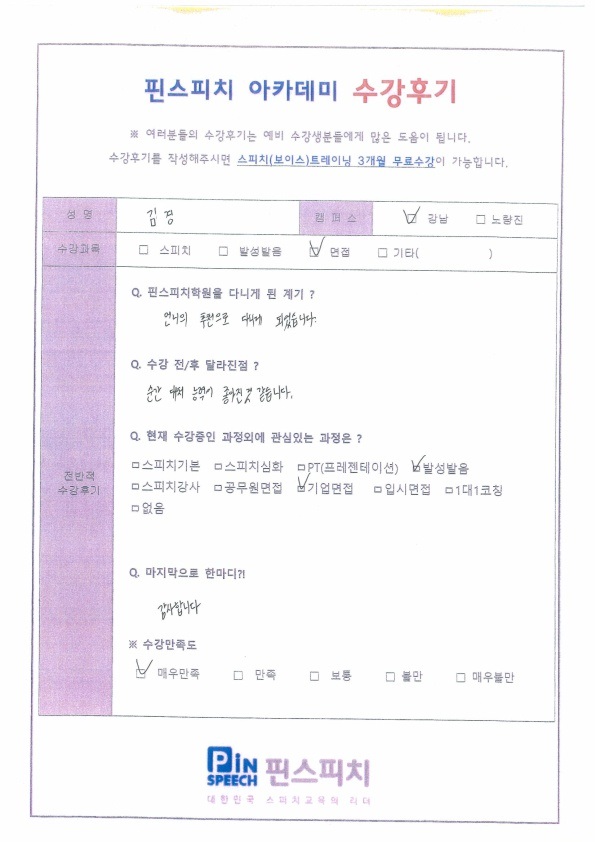 핀스피치 아카데미 수강후기
※ 여러분들의 수강후기는 예비 수강생분들에게 많은 도움이 됩니다.
수강후기를 작성해주시면 스피치(보이스)트레이닝 3개월 무료수강이 가능합니다.
성 명 김 경 캠 퍼 스 ☑ 강남 □ 노량진
수강과목 □ 스피치 □ 발성발음 ☑ 면접 □ 기타( )
Q. 핀스피치학원을 다니게 된 계기 ?
언니의 추천으로 다니게 되었습니다.
Q. 수강 전/후 달라진점 ?
순간 대처 능력이 좋아진것 같습니다.
Q. 현재 수강중인 과정외에 관심있는 과정은 ?
□스피치기본 □스피치심화 □PT(프레젠테이션) ☑발성발음
전반적
수강후기
□스피치강사 □공무원면접 ☑기업면접 □입시면접 □1대1코칭
□없음
Q. 마지막으로 한마디?!
감사합니다
※ 수강만족도
☑ 매우만족 □ 만족 □ 보통 □ 불만 □ 매우불만
PiN
SPEECH 핀스피치
대한민국 스피치교육의 리더